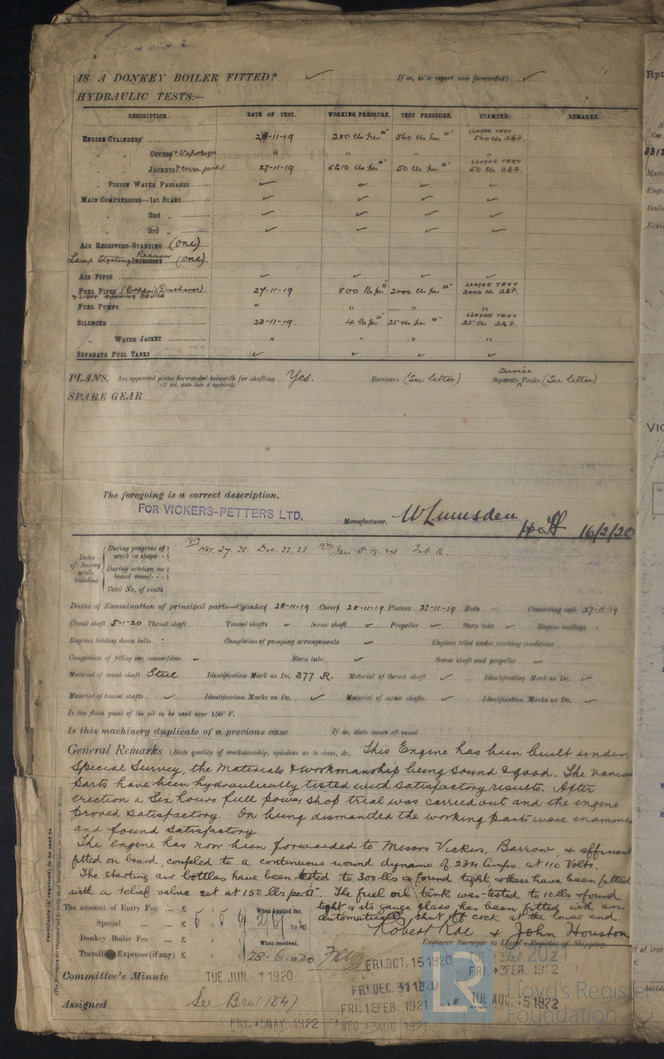 IS A DONKEY BOILER FITTED? ✓ If so, is a report now forwarded? ✓
HYDRAULIC TESTS:—
DESCRIPTION. DATE OF TEST. WORKING PRESSURE. TEST PRESSURE. STAMPED. REMARKS.
ENGINE CYLINDERS 28-11-19 280 lbs per □" 560 lbs per □" LLOYDS TEST 560 lbs
" COVERS " " " "
" JACKETS 27-11-19 5 to 10 lbs per □" 50 lbs per □" LLOYDS TEST 50 lbs
" PISTON WATER PASSAGES ✓ ✓ ✓ ✓
MAIN COMPRESSORS—1st STAGE ✓ ✓ ✓ ✓
" 2nd " ✓ ✓ ✓ ✓
" 3rd " ✓ ✓ ✓ ✓
AIR RECEIVERS-STARTING (One)
Lamp Starting Receiver (One)
AIR PIPES ✓ ✓ ✓ ✓
FUEL PIPES (Copper) (Discharge) 27-11-19 800 lbs per □" 2000 lbs per □" LLOYDS TEST 2000 lbs
FUEL PUMPS " " " "
SILENCER 28-11-19 4 lbs per □" 25 lbs per □" LLOYDS TEST 25 lbs
" WATER JACKET " " " "
SEPARATE FUEL TANKS ✓ ✓ ✓ ✓
PLANS. Are approved plans forwarded herewith for shafting Yes. Receivers (See letter) Separate Service Tanks (See letter)
(If not, state date of approval)
SPARE GEAR
The foregoing is a correct description,
FOR VICKERS-PETTERS LTD. Manufacturer. W Lumsden 16/2/20
Dates of Survey while building
During progress of work in shops - - 1919 Nov. 27. 28. Dec. 22. 23. 1920 Jan 5. Feb. 16.
During erection on board vessel - -
Total No. of visits
Dates of Examination of principal parts—Cylinders 28-11-19 Covers 28-11-19 Pistons 27-11-19 Rods — Connecting rods 27-11-19
Crank shaft 5-1-20 Thrust shaft Tunnel shafts ✓ Screw shaft ✓ Propeller ✓ Stern tube ✓ Engine seatings ✓
Engines holding down bolts " Completion of pumping arrangements ✓ Engines tried under working conditions
Completion of fitting sea connections ✓ Stern tube ✓ Screw shaft and propeller ✓
Material of crank shaft Steel Identification Mark on Do. 377 R. Material of thrust shaft ✓ Identification Mark on Do. ✓
Material of tunnel shafts ✓ Identification Marks on Do. ✓ Material of screw shafts ✓ Identification Marks on Do. ✓
Is the flash point of the oil to be used over 150° F.
Is this machinery duplicate of a previous case If so, state name of vessel
General Remarks (State quality of workmanship, opinions as to class, &c. This Engine has been built under
Special Survey, the Materials & workmanship being sound & good. The various
parts have been hydraulically tested with satisfactory results. After
erection a six hours full power shop trial was carried out and the engine
proved satisfactory. On being dismantled the working parts were examined
and found satisfactory
The engine has now been forwarded to Messrs Vickers, Barrow, &
fitted on board, coupled to a continuous wound dynamo of Amps. at 110 Volts.
The starting air bottles have been tested to 300 lbs & found tight & these have been fitted
with a relief valve set at 150 lbs per □". The fuel oil tank was tested to 10 lbs & found
tight & its gauge glass has been fitted with an
automatically shut off cock at the lower end.
Robert Rae & John Houston
Engineer Surveyor to Lloyd's Register of Shipping.
The amount of Entry Fee .. £ When applied for,
Special ... £ 5 : 5
Donkey Boiler Fee ... £ When received,
Travelling Expenses (if any) £ 28-6-1920
Committee's Minute TUE. JUN. 1 1920 FRI. OCT. 15 1920 FRI. FEB. 1922
FRI. DEC. 31 1920
Assigned See Bro 1847 FRI. FEB. 1921 TUE. AUG. 1922
FRI. MAY. 1922 WED. AUG. 1921
2021
Lloyd's Register
Foundation